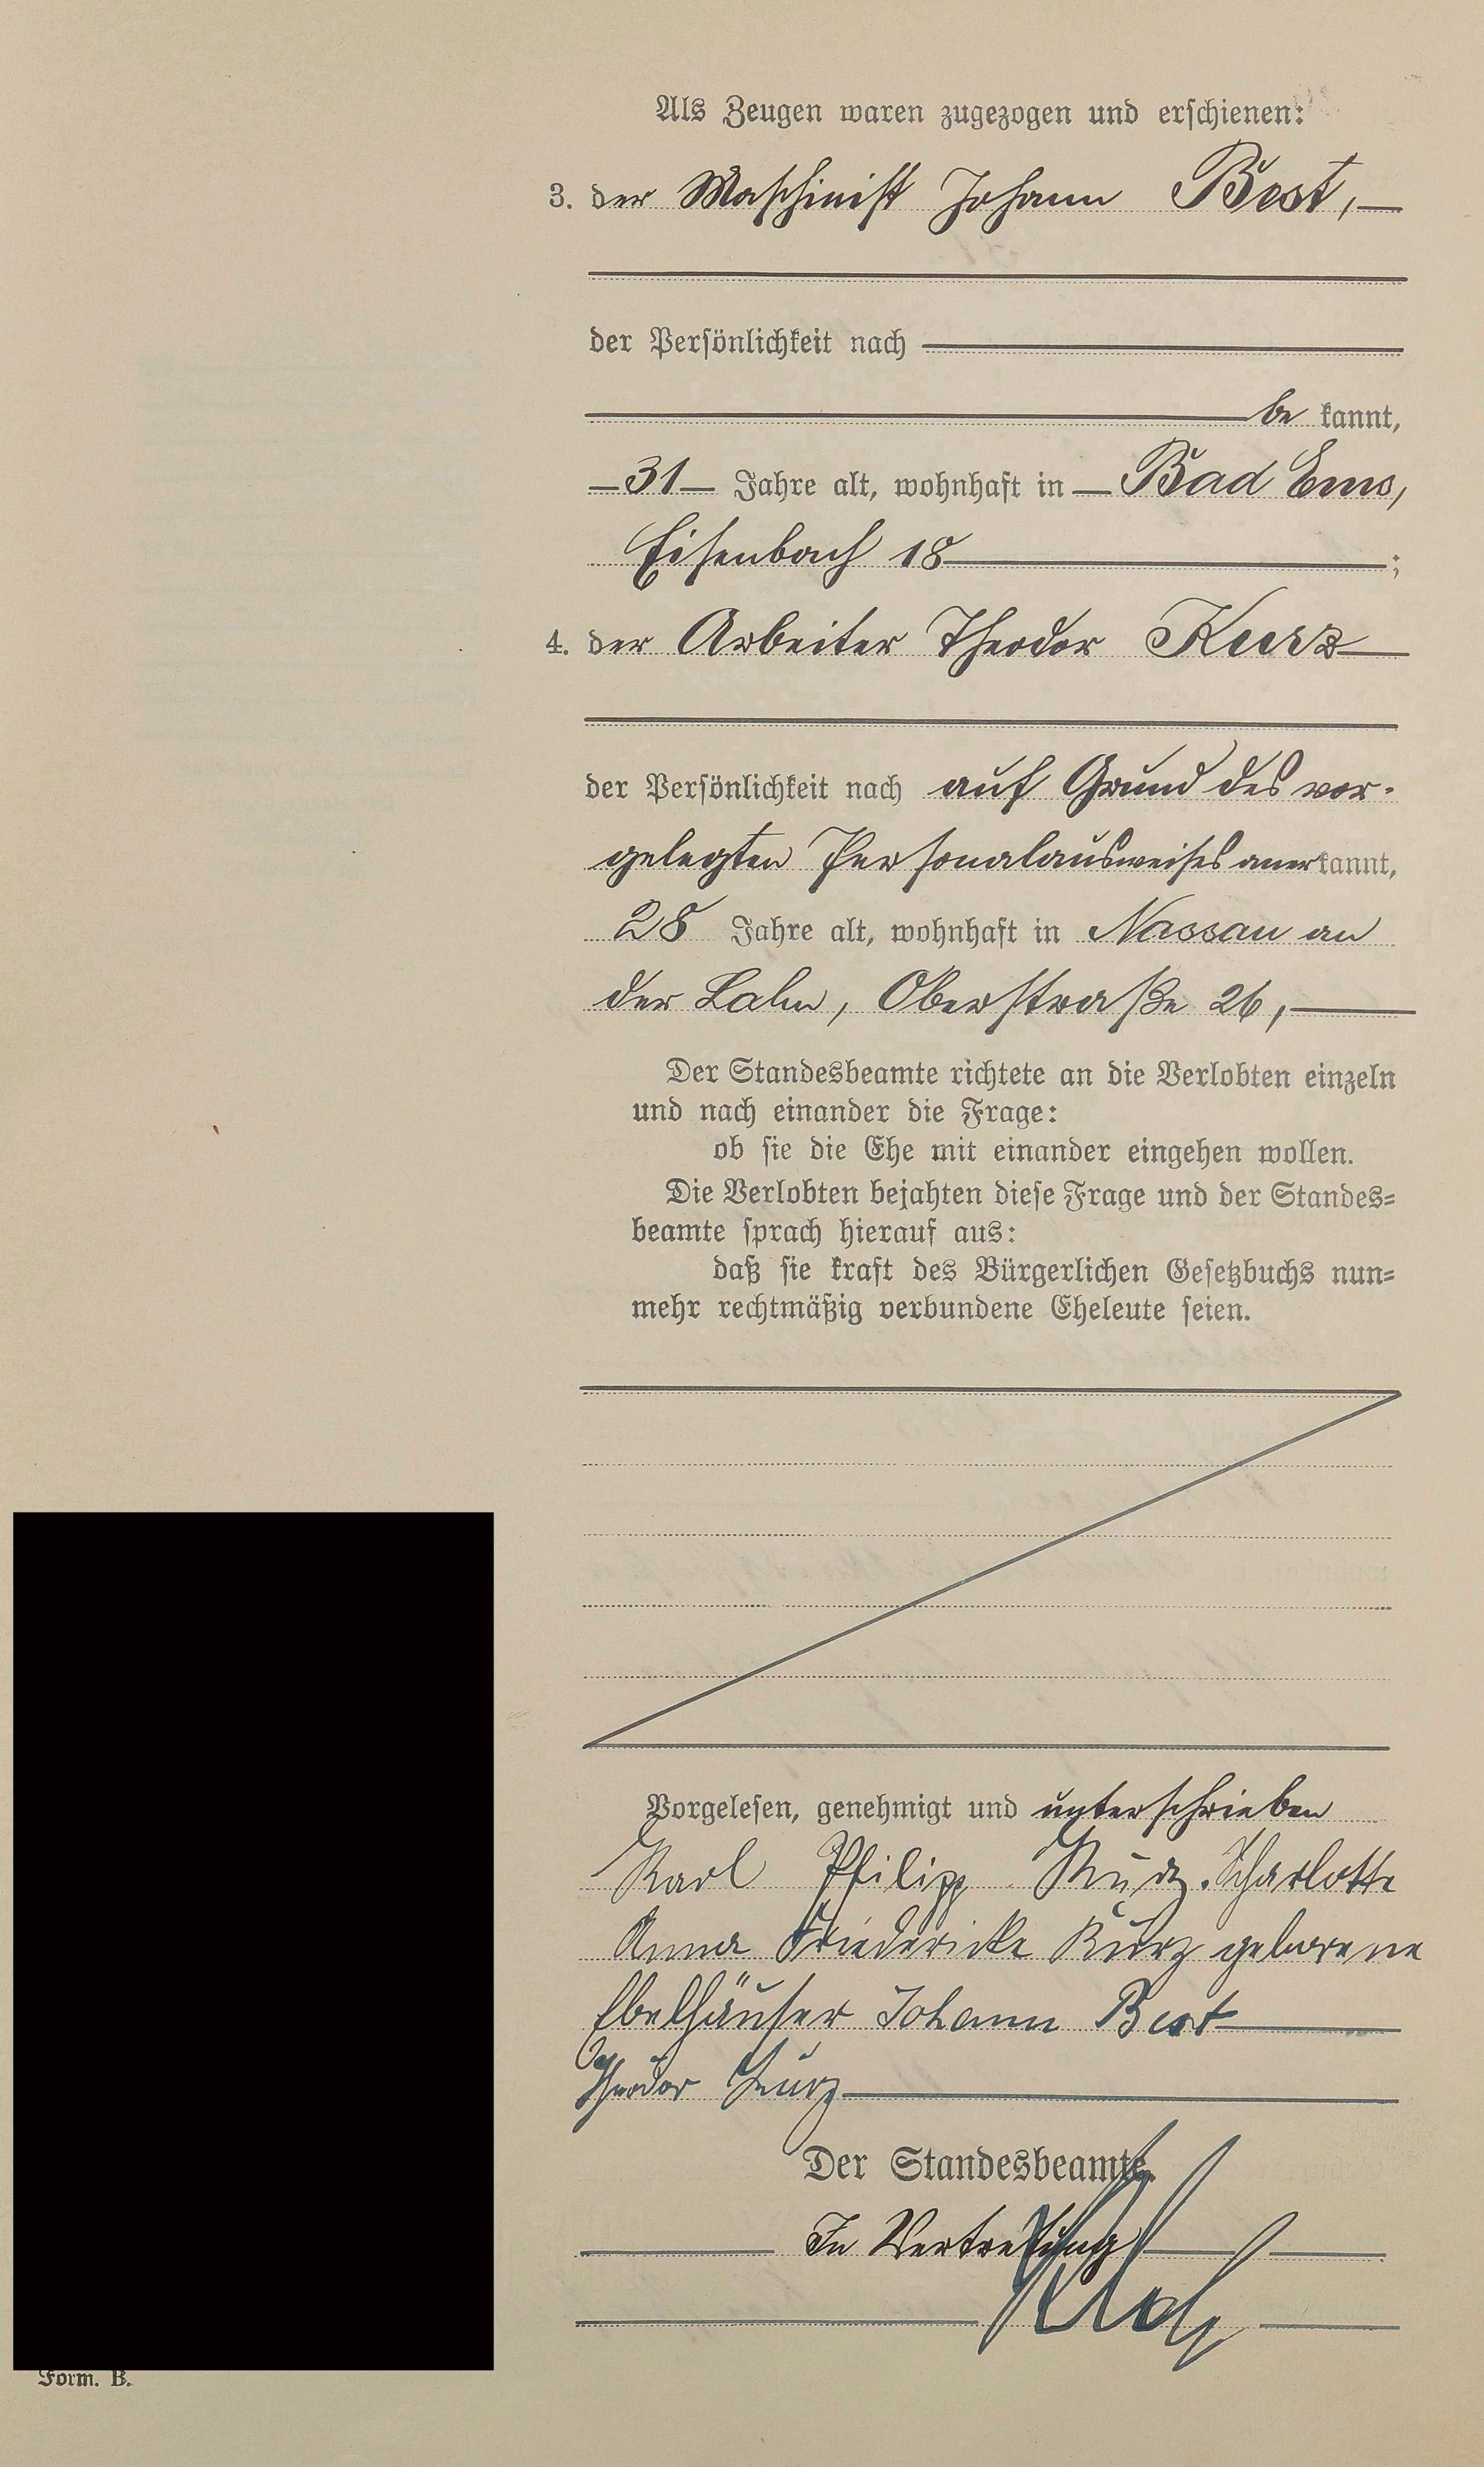 Als Zeugen waren zugezogen und erschienen:
3. der Maschinist Johann Best,
der Persönlichkeit nach
be kannt,
31 Jahre alt, wohnhaft in Bad Ems,
Eisenbach 18 ;
4. der Arbeiter Theodor Kurz
der Persönlichkeit nach auf Grund des vor-
gelegten Personalausweises anerkannt,
28 Jahre alt, wohnhaft in Nassau an
der Lahn, Oberstraße 26,
Der Standesbeamte richtete an die Verlobten einzeln
und nach einander die Frage:
ob sie die Ehe mit einander eingehen wollen.
Die Verlobten bejahten diese Frage und der Standes-
beamte sprach hierauf aus:
daß sie kraft des Bürgerlichen Gesetzbuchs nun-
mehr rechtmäßig verbundene Eheleute seien.
Vorgelesen, genehmigt und unterschrieben
Karl Philipp Kurz. Scharlotte
Anna Friedericke Kurz geborene
Ebelhäuser Johann Best
Theodor Kurz
Der Standesbeamte.
In Vertretung
Form. B.